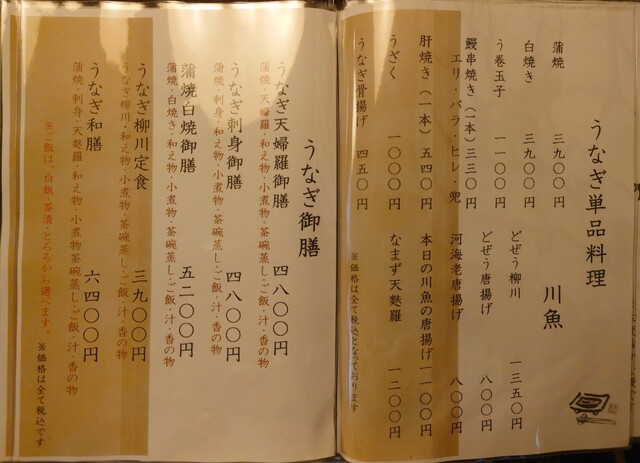 うなぎ単品料理
蒲焼 三九〇〇円
白焼き 三九〇〇円
う巻玉子 一一〇〇円
鰻串焼き(一本)三三〇円
エリ・バラ・ヒレ・兜
肝焼き(一本)五四〇円
うざく 一〇〇〇円
うなぎ骨揚げ 四五〇円
川魚
どぜう柳川 一三五〇円
どぜう唐揚げ 八〇〇円
河海老唐揚げ 八〇〇円
本日の川魚の唐揚げ 一一〇〇円
なまず天麩羅 一二〇〇円
※価格は全て税込となっております
うなぎ御膳
うなぎ天婦羅御膳 四八〇〇円
蒲焼・天婦羅・和え物・小煮物・茶碗蒸し・ご飯・汁・香の物
うなぎ刺身御膳 四八〇〇円
蒲焼・刺身・和え物・小煮物・茶碗蒸し・ご飯・汁・香の物
蒲焼白焼御膳 五二〇〇円
蒲焼・白焼き・和え物・小煮物・茶碗蒸し・ご飯・汁・香の物
うなぎ柳川定食 三九〇〇円
うなぎ柳川・和え物・小煮物・茶碗蒸し・ご飯・汁・香の物
うなぎ和膳 六四〇〇円
蒲焼・刺身・天麩羅・和え物・小煮物・茶碗蒸し・ご飯・汁・香の物
※ご飯は、白飯・茶漬・とろろから選べます。
※価格は全て税込です